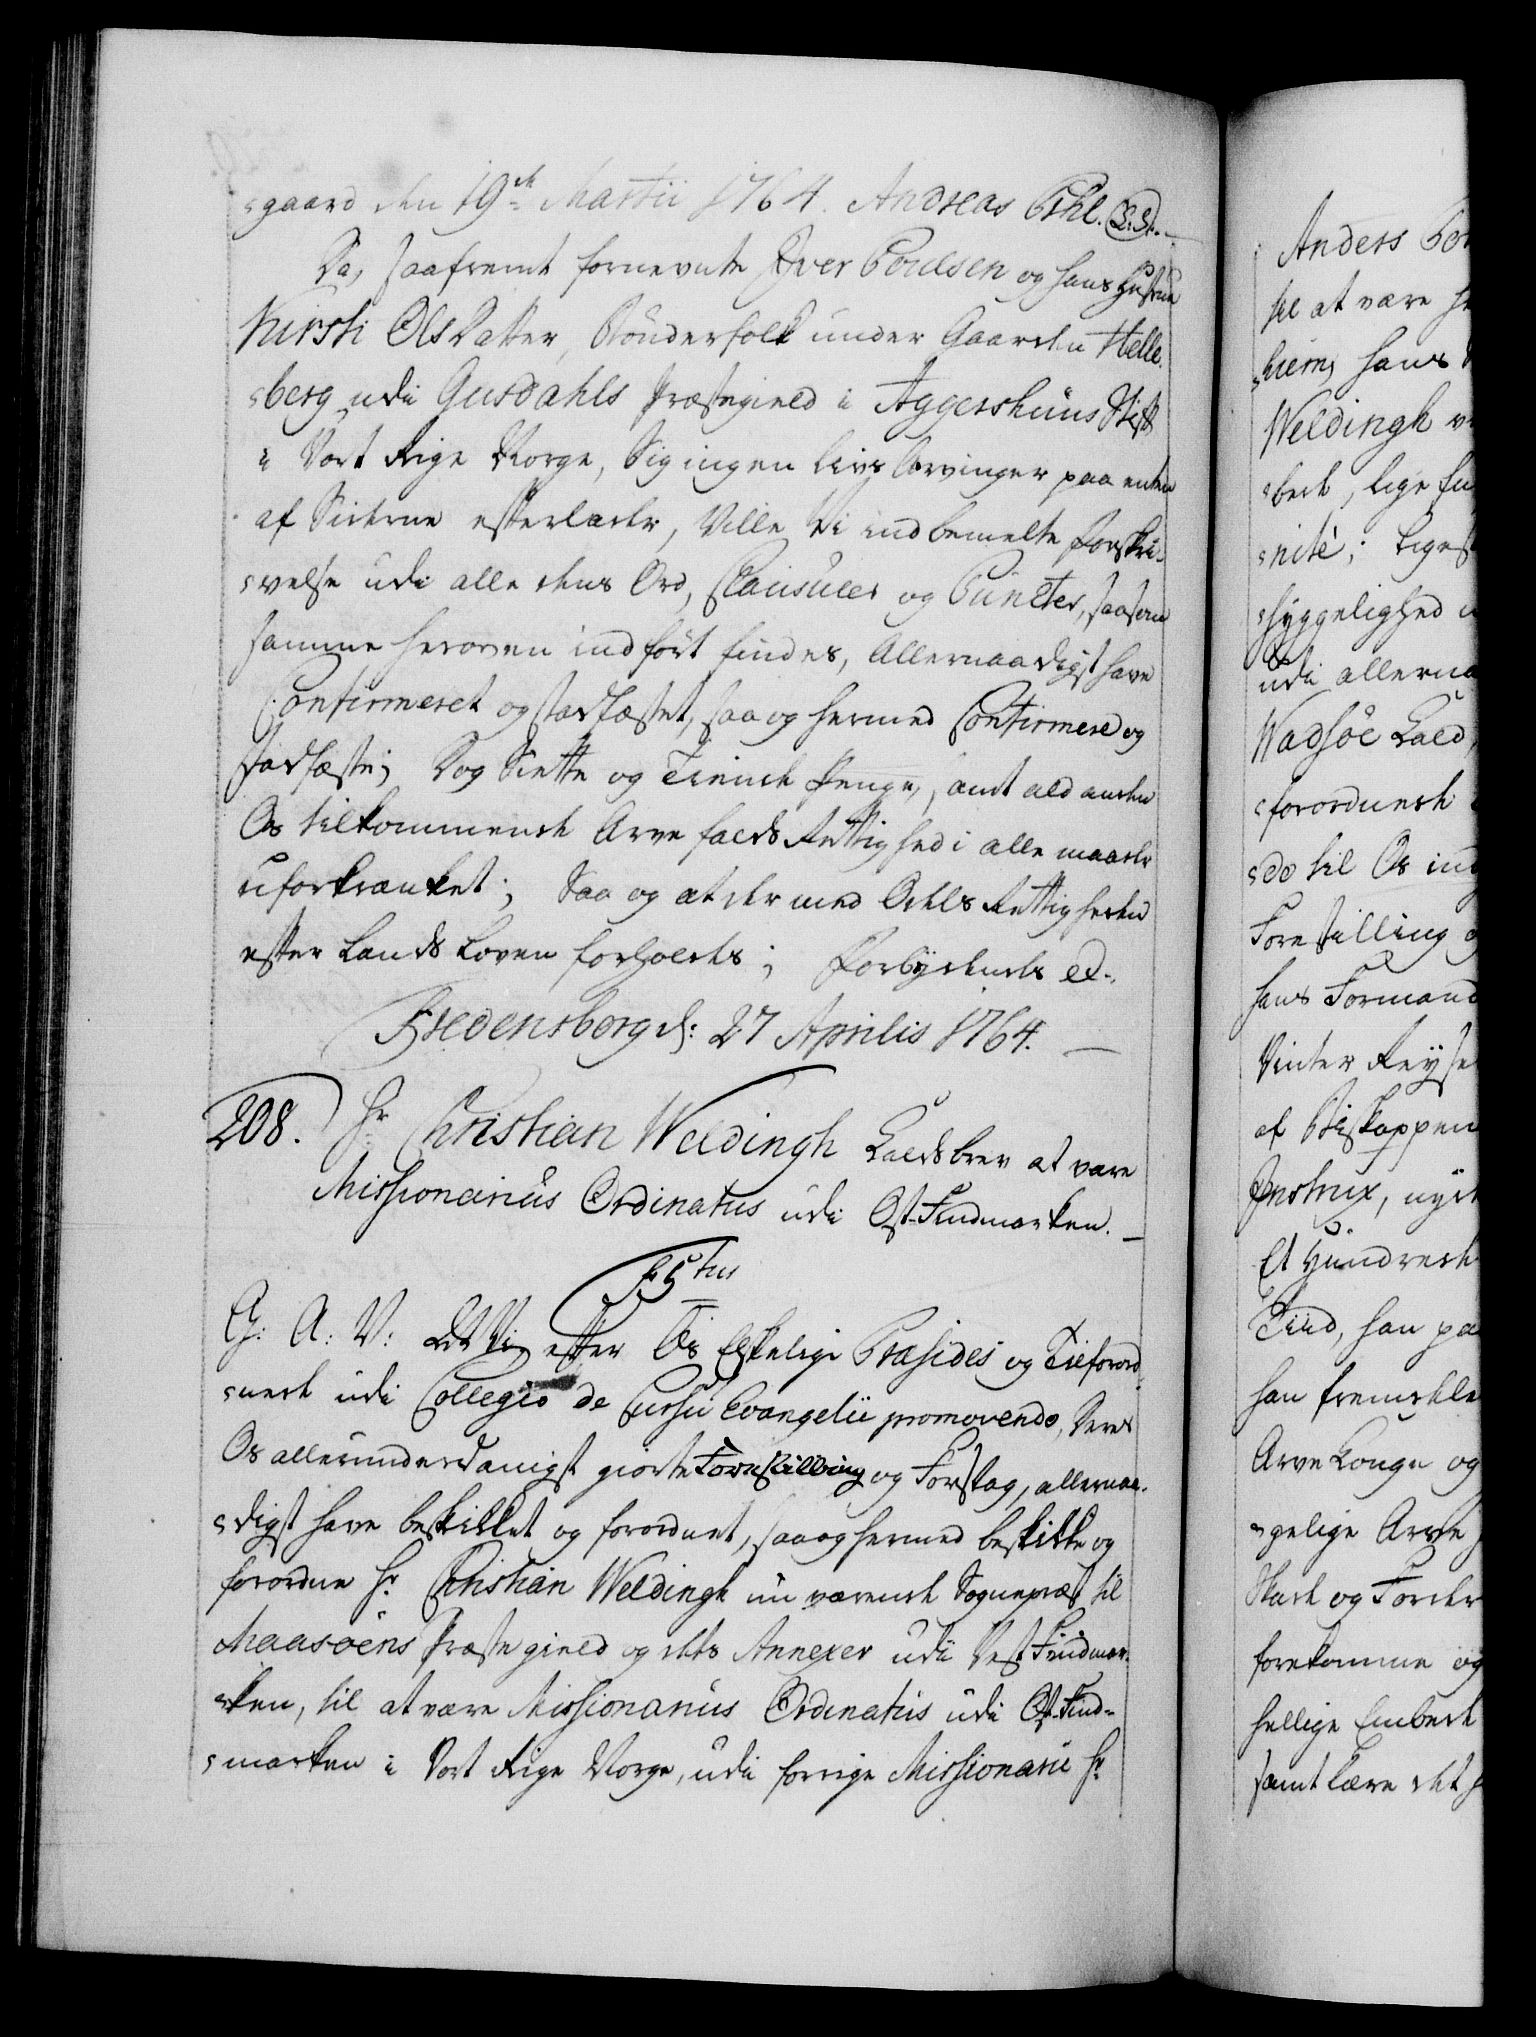 gaard den 19de Martii 1764. Andreas Pihl. (L.S.)
Da, saafremt fornevnte Iver Poulsen og hans Hustrue
Kirsti Olsdatter, Bønderfolk under Gaarden Helle-
berg udi Gusdahls Præstegield i Aggershuus Stift
i Vort Rige Norge, Sig ingen Livs Arvinger paa enten
af Siderne efterlader, Ville Vi ind bemelte Forskri-
velse udi alle dens Ord, Clausuler og Puncter, saasom
samme heroven indført findes, Allernaadigst have
Confirmeret og stadfæstet, saa og hermed Confirmere og
stadfæste; Dog Siette og Tiende Penge, samt ald anden
Os tilkommende Arve falds Rettighed i alle maader
uforkrænket; Saa og at der med Odels Rettigheden
efter Lands Loven forholdes; Forbydendes &c.
Fredensborg d: 27 Aprilis 1764.
208. Hr Christian Weldingh Kaldsbrev at være
Missionarius Ordinatus udi Ost-Findmarken.
F5tus
G: A: V: at Vi, efter Os Elskelige Præsides og Tilforord-
nede udi Collegio de Cursu Evangelii promovendo, deres
Os allerunderdanigst giorte Forestilling og Forslag, allernaa-
digst have beskikket og forordnet, saa og hermed beskikke og
forordne Hr Christian Weldingh nu værende Sognepræst til
Maasøens Præstegield og dets Annexer udi Vest Findmar-
ken, til at være Missionarius Ordinatus udi Ost-Find-
marken i Vort Rige Norge, udi forrige Missionarii Hr
Anders
til at være
hiem, hans
Weldingh
bede, lige
nité; Liges
hyggelighed
udi allerna
Wadsøe Kald,
forordnede
do til Os ind
Forestilling
hans Formand
Vinter Reyse
af Biskoppen
Instrux,
Et Hundrede
Tiid, han
han fremdele
Arve Konge og
gelige Arve
Stand og
forekomme og
hellige Embede
samt lære det